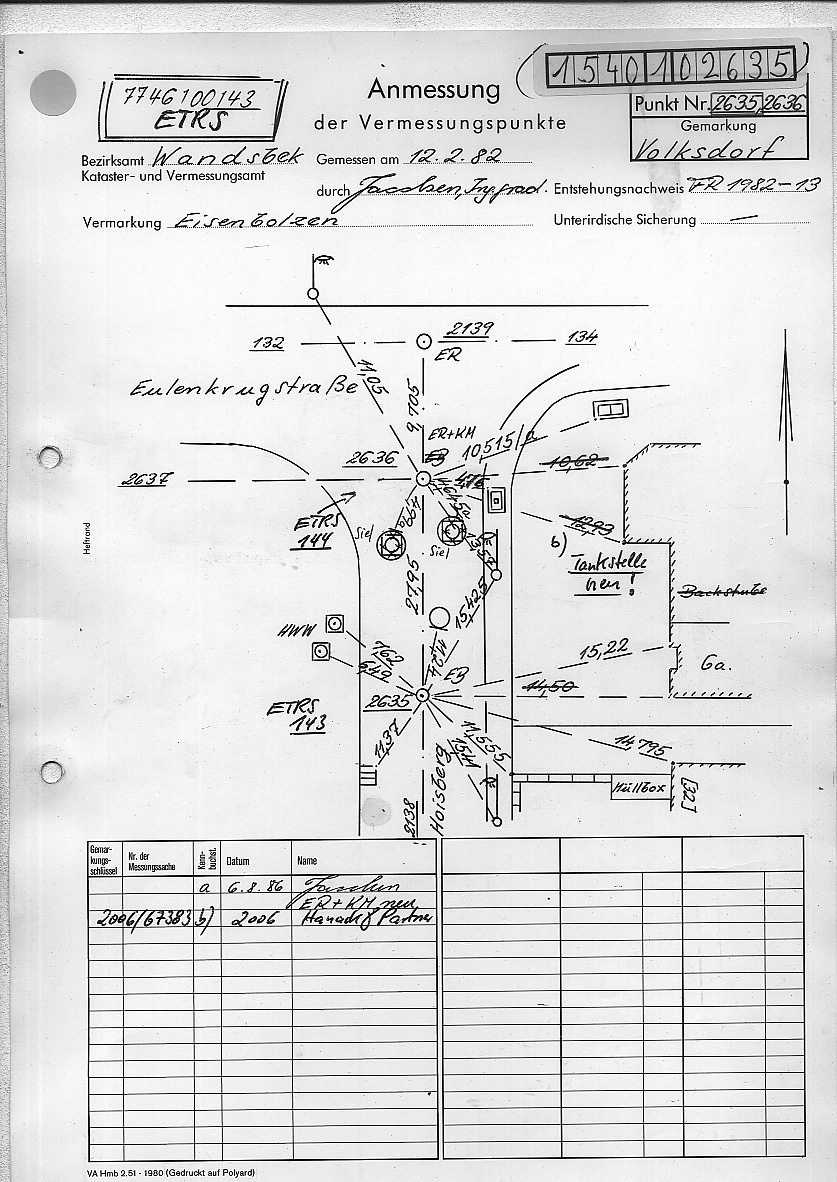 1540102635
7746100143
ETRS
Anmessung
der Vermessungspunkte
Punkt Nr. 2635, 2636
Gemarkung
Volksdorf
Bezirksamt Wandsbek
Kataster- und Vermessungsamt
Gemessen am 12.2.82
durch Jacobsen, Ing. grad.
Entstehungsnachweis FR 1982-13
Vermarkung Eisenbolzen
Unterirdische Sicherung —
132
2139
134
ER
11,05
9,705
Eulenkrugstraße
ER+KM
EB
10,515/a
2636
2637
10,62
4,75
ETRS
144
Siel
Siel
12,93
b)
Tankstelle
neu!
27,95
15,425
Backstube
HWW
7,62
6,49
EB
15,22
6a.
2635
14,50
ETRS
143
11,37
11,555
15,41
14,795
Hoisberg
2138
Müllbox
[32]
Heftrand
Gemar-
kungs-
schlüssel
Nr. der
Messungssache
Kenn-
buchst.
Datum
Name
a 6.8.86
ER+KM neu
2006/67383 b) 2006 Hanack & Partner
VA Hmb 2.51 - 1980 (Gedruckt auf Polyard)